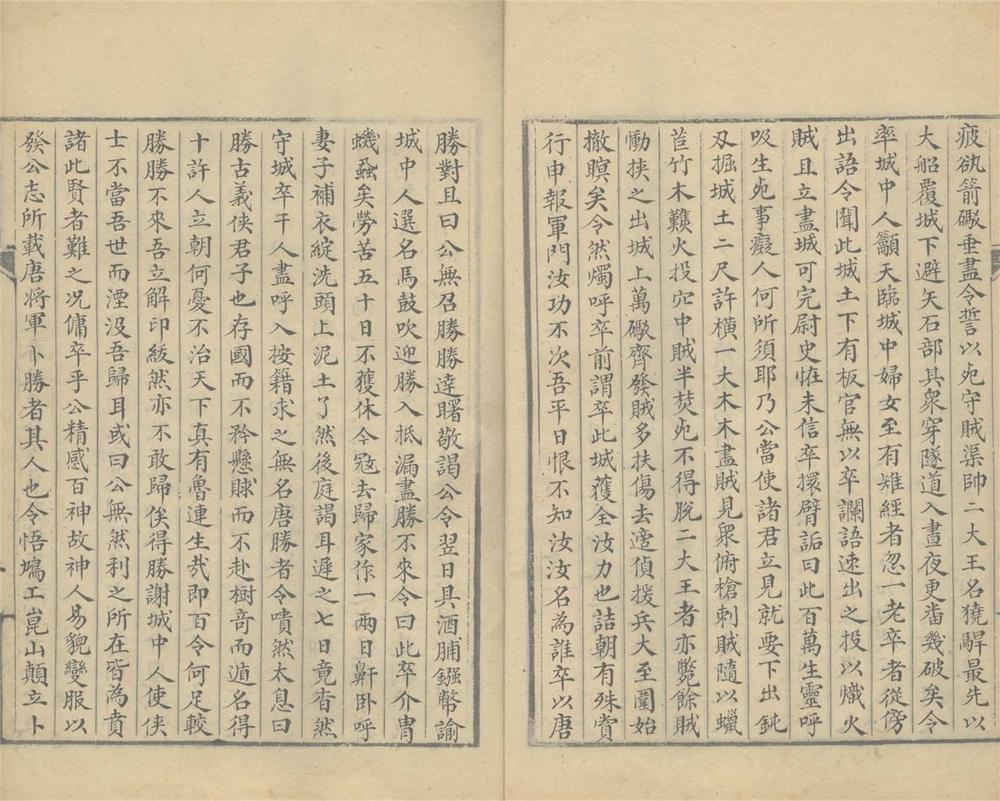 疲欲箭礮垂盡令誓以死守賊渠帥二大王名獍駻最先以
大船覆城下避矢石部其衆穿隧道入晝夜更畨幾破矣令
率城中人籲天臨城中婦女至有雉經者忽一老卒者從傍
出語令聞此城土下有板官無以卒讕語速出之投以熾火
賊且立盡城可完尉史恠未信卒擐臂詬曰此百萬生靈呼
吸生死事癡人何所須耶乃公當使諸君立見就要下出鈍
刄掘城土二尺許橫一大木木盡賊見衆俯槍刺賊隨以蠟
苣竹木爇火投穴中賊半焚死不得脫二大王者亦斃餘賊
慟挾之出城上萬礮齊發賊多扶傷去邊偵援兵大至圍始
撤瞑矣令然燭呼卒前謂卒此城獲全汝力也詰朝有殊賞
行申報軍門汝功不次吾平日恨不知汝汝名為誰卒以唐
勝對且曰公無召勝勝達曙敬謁公令翌日具酒脯鏹幣諭
城中人選名馬鼓吹迎勝入抵漏盡勝不來令曰此卒介胄
蟣蝨矣勞苦五十日不獲休今寇去歸家作一兩日鼾卧呼
妻子補衣綻洗頭上泥土了然後庭謁耳遲之七日竟杳然
守城卒干人盡呼入按籍求之無名唐勝者令喟然太息曰
勝古義俠君子也存國而不矜懸賕而不赴樹竒而遁名得
十許人立朝何憂不治天下真有魯連生哉即百令何足較
勝勝不來吾立解印綬然亦不敢歸俟得勝謝城中人使俠
士不當吾世而湮沒吾歸耳或曰公無然利之所在皆為賁
諸此賢者難之况傭卒乎公精感百神故神人易貌變服以
發公志所載唐將軍卜勝者其人也令悟鳩工崑山顛立卜